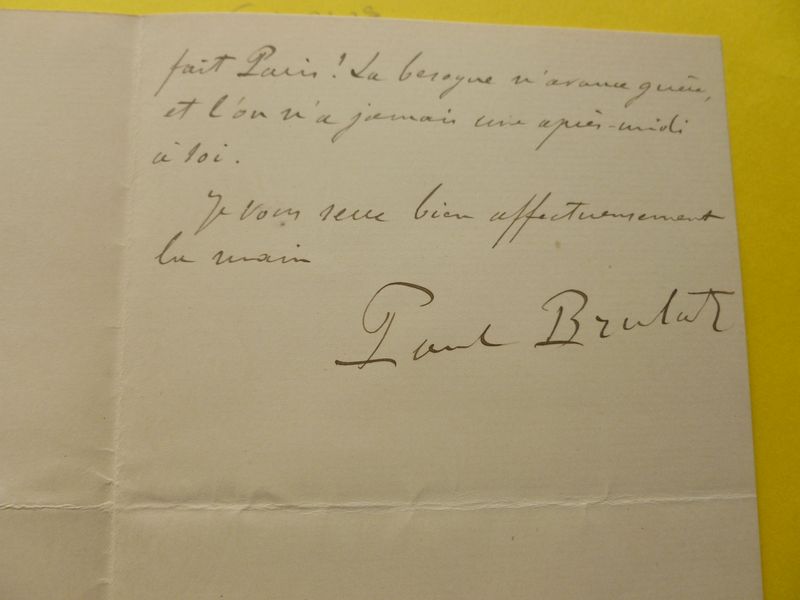 fait Paris! La besogne n'avance guère,
et l'on n'a jamais une après-midi
à soi.
Je vous serre bien affectueusement
la main
Paul Brulat